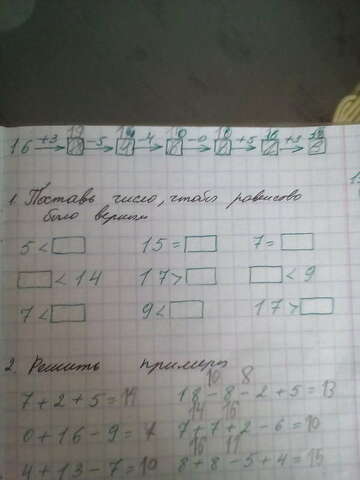 16 +3 → 19 -5 → 14 -4 → 10 -0 → 10 +5 → +3 →
1 Поставь число, чтобы равенство
было верным
5 < □ 15 = □ 7 = □
□ < 14 17 > □ □ < 9
7 < □ 9 < □ 17 > □
2. Решить примеры
10 8
7 + 2 + 5 = 14 18 - 8 - 2 + 5 = 13
14 16
0 + 16 - 9 = 7 7 + 7 + 2 - 6 = 10
16 11
4 + 13 - 7 = 10 8 + 8 - 5 + 4 = 15